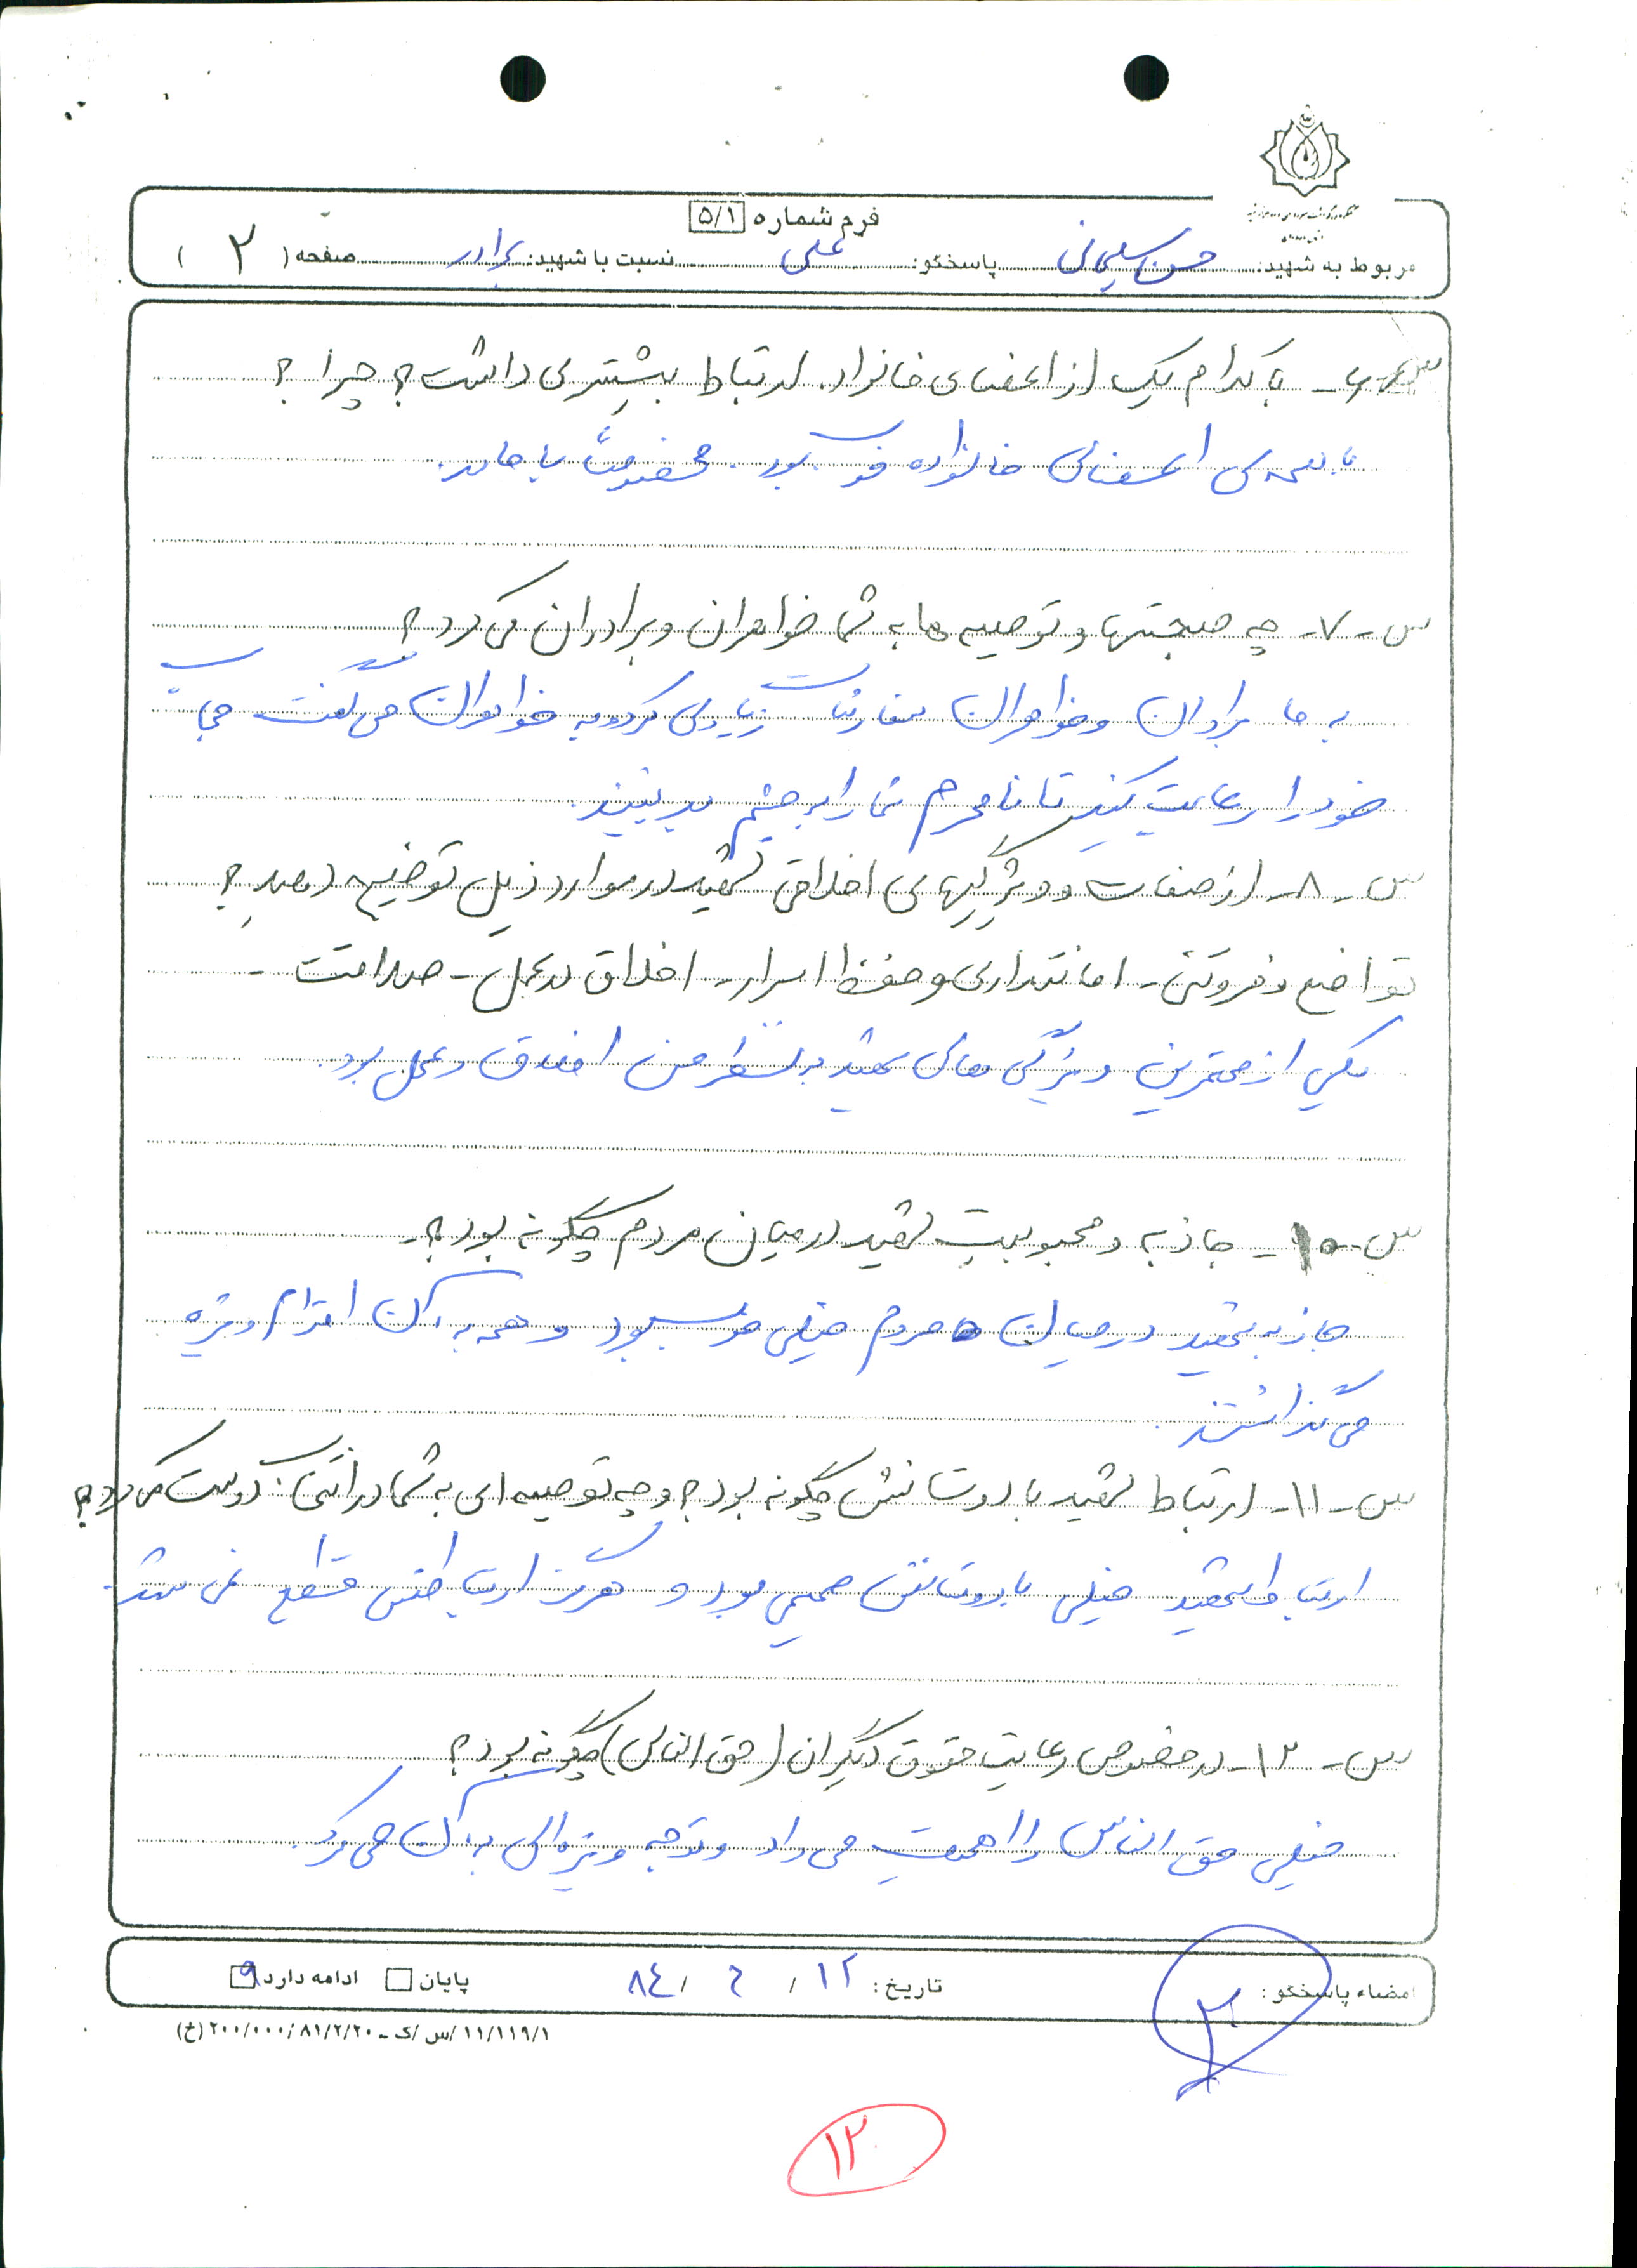 فرم شماره ۵/۱
مربوط به شهید: حسن سلیمانی پاسخگو: علی نسبت با شهید: برادر صفحه ( ۲ )
س-۶- با کدام یک از اعضای خانواده ارتباط بیشتری داشت؟ چرا؟
با همه ی اعضای خانواده خوب بود. مخصوصاً با مادر.
س-۷- چه صحبتها و توصیه ها به شما خواهران و برادران می کرد؟
به ما برادران و خواهران سفارشات زیادی کرد و به خواهران می گفت حجاب
خود را رعایت کنید تا نامحرم شما را به چشم بد نبیند.
س-۸- از صفات و ویژگیهای اخلاقی شهید در موارد ذیل توضیح دهید؟
تواضع و فروتنی - امانتداری و حفظ اسرار - اخلاق در عمل - صداقت -
یکی از مهمترین ویژگی های شهید به نظر من اخلاق و عمل بود.
س-۱۰- جاذبه و محبوبیت شهید در میان مردم چگونه بود؟
جاذبه شهید در میان مردم خیلی خوب بود و همه به آن احترام ویژه
می گذاشتند.
س-۱۱- ارتباط شهید با دوستانش چگونه بود؟ و چه توصیه ای به شما در انتخاب دوست می کرد؟
ارتباط شهید خیلی با دوستانش صمیمی بود و هرگز ارتباطش قطع نمی شد.
س-۱۲- در خصوص رعایت حقوق دیگران (حق الناس) چگونه بود؟
خیلی حق الناس را اهمیت می داد و توجه ویژه ای به آن می کرد.
امضاء پاسخگو: تاریخ: ۱۲ / ۶ / ۸۴ پایان ادامه دارد
۱۱/۱۱۹/۱/س/ک - ۲۰۰/۰۰۰/۸۱/۲/۲۰ (خ)
۱۲